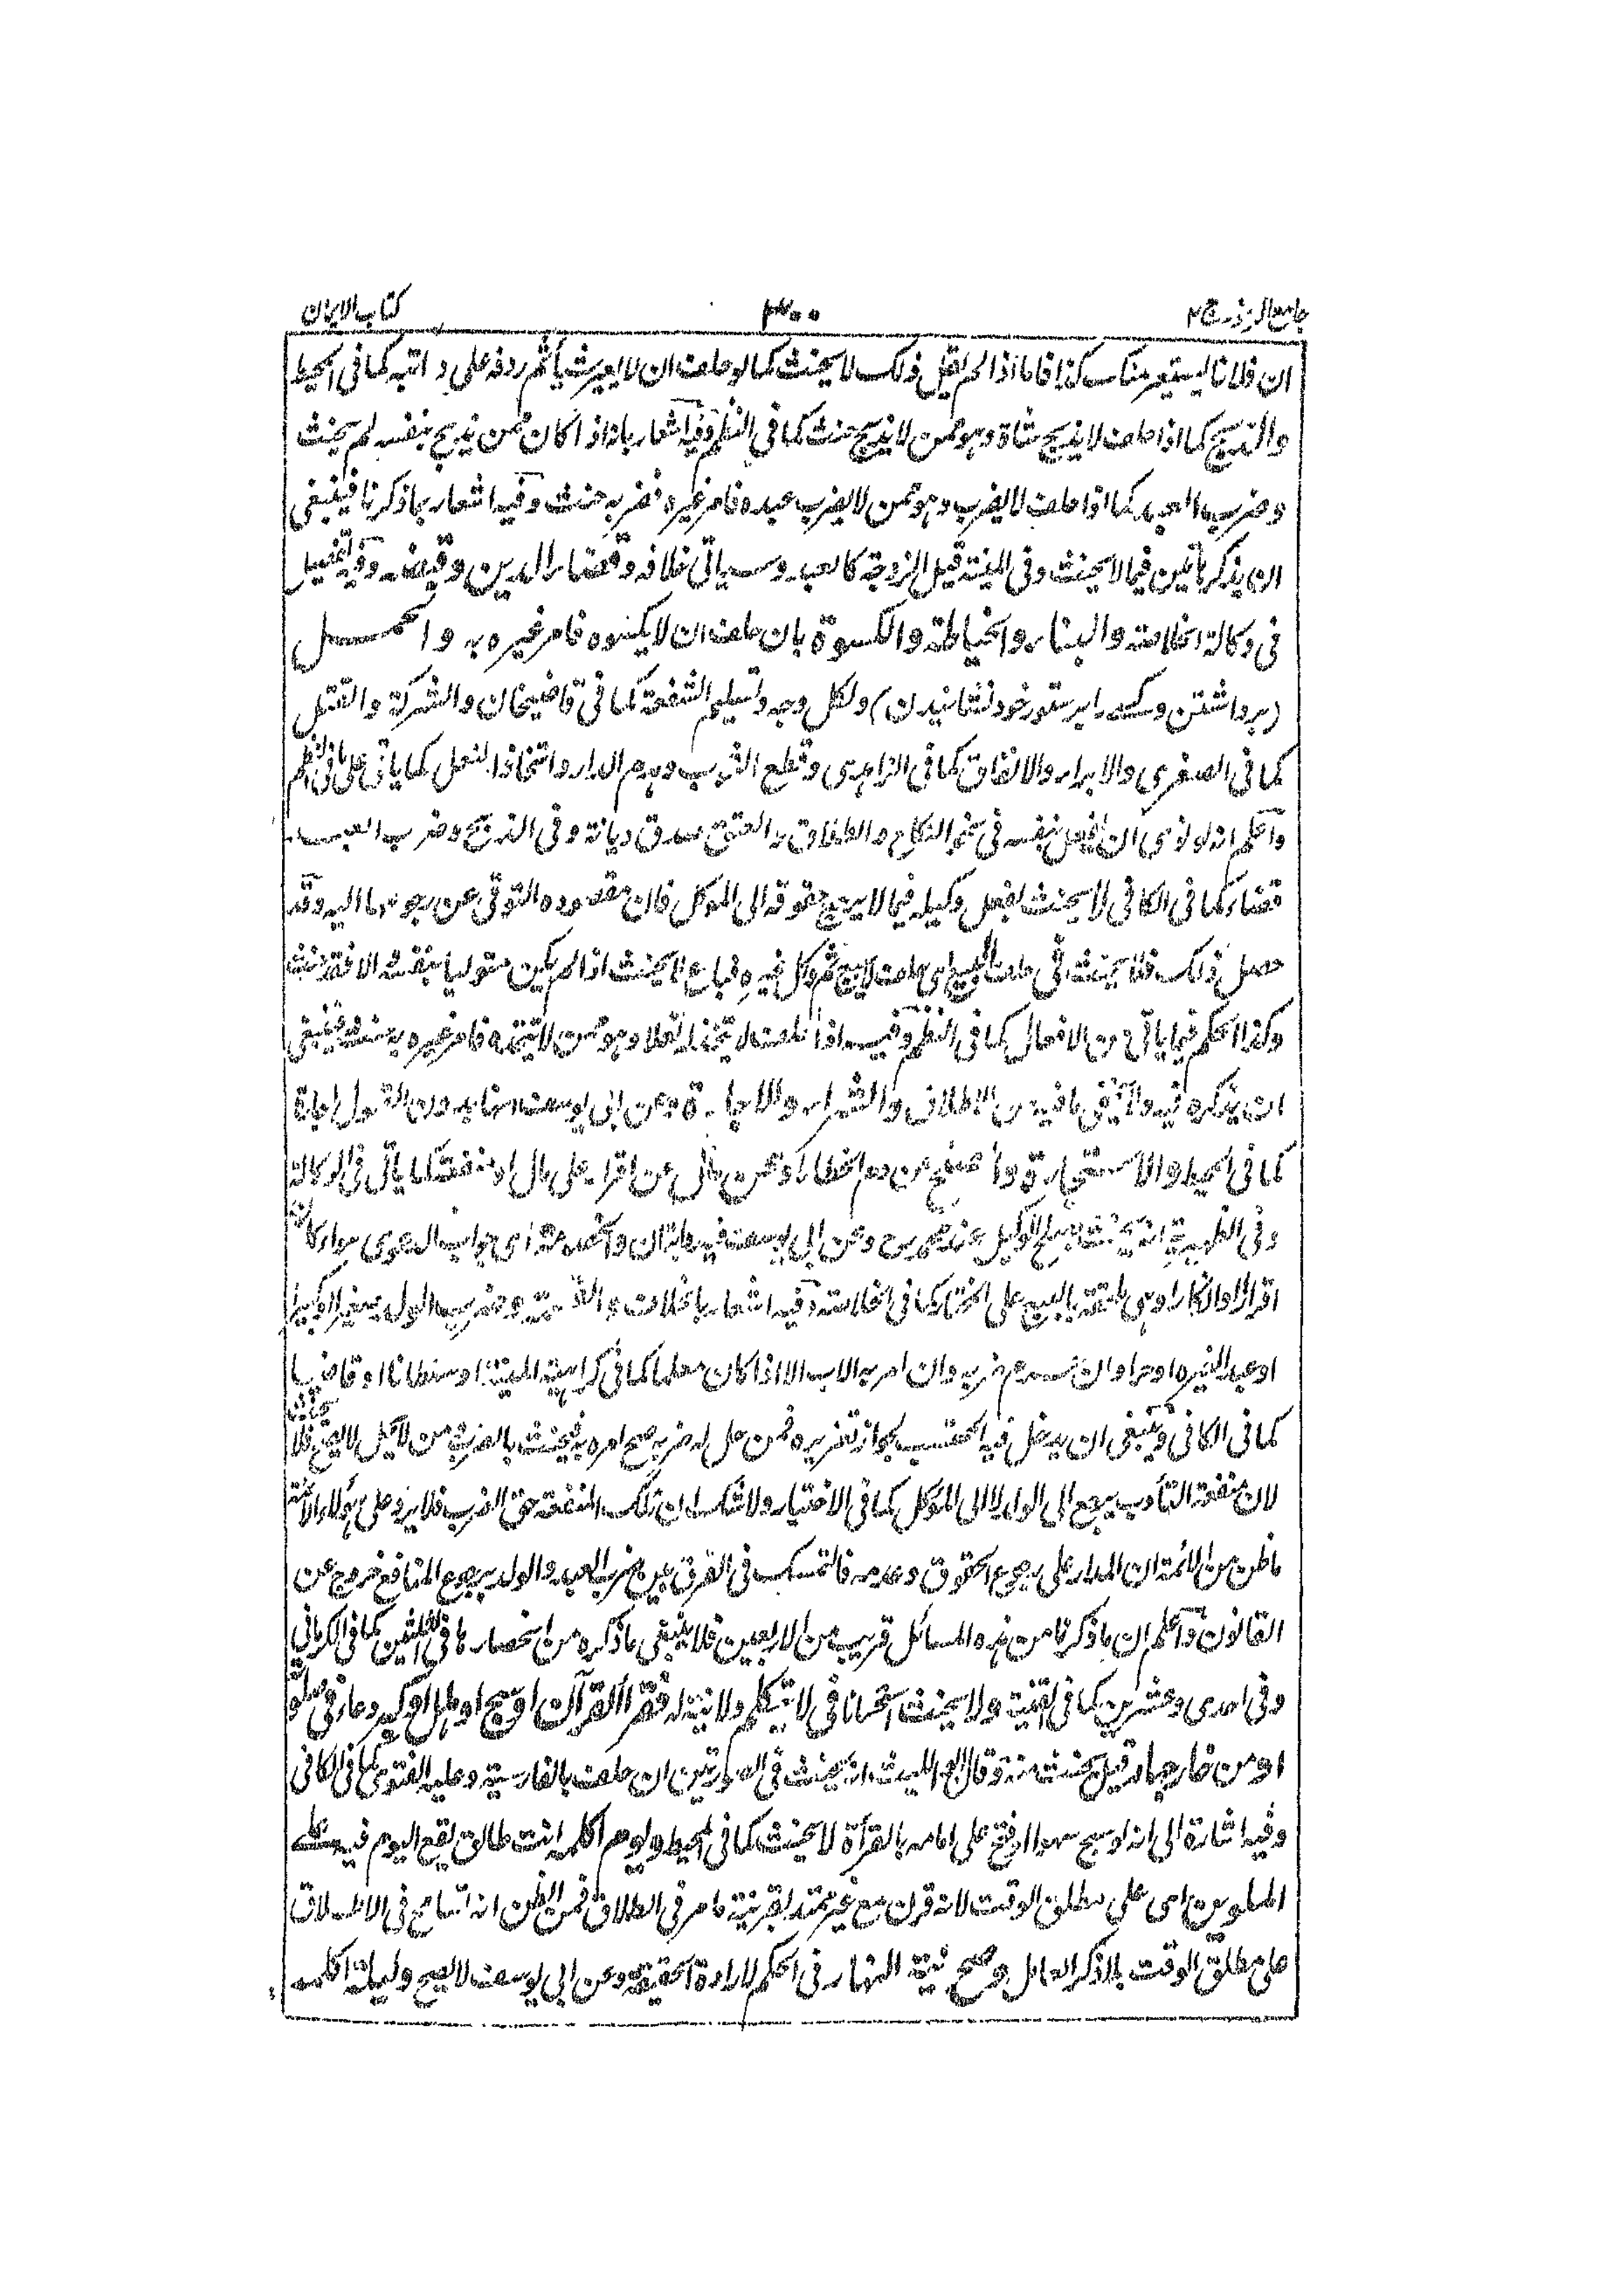 جامع الرموز ج ٢ ٣٠٠ كتاب الايمان
ان فلانا يستعير منك كذا فاما اذا لم يقل ذلك لا يحنث كما لو حلف ان لا يعير شيأ ثم ردفه على دابته كما فى المحيط
والذبح كما اذا حلف لا يذبح شاة وهو ممن لا يذبح حنث كما فى النظم وفيه اشعار بانه اذا كان ممن يذبح بنفسه لم يحنث
وضرب العبد كما اذا حلف لا يضرب وهو ممن لا يضرب عبده فامر غيره فضربه حنث وفيه اشعار بما ذكرنا فينبغى
ان يذكر باللين فيما لا يحنث وفى المنية قيل الزوجة كالعبد وسياتى خلافه وقضاء الدين وقبضه وفيه تفصيل
فى وكالة الخلاصة والبناء والخياطة والكسوة بان حلف ان لا يكسوه فامر غيره به والحمل
(برداشتن وكسے را برستور خود نشانيدن) ولكل وجه وتسليم الشفعة كما فى قاضيخان والشركة والقتل
كما فى الصغرى والابراء والانفاق كما فى الزاهدى وقطع الثوب وهدم الدار واتخاذ النعل كما ياتى على ما فى النظم
واعلم انه لو نوى ان يفعل بنفسه فى نحو النكاح والطلاق والعتق صدق ديانة وفى الذبح وضرب العبد
قضاء كما فى الكافى لا يحنث بفعل وكيله فيما لا يرجع حقوقه الى الموكل فان مقصوده التوقى عن رجوعها اليه وقد
حصل ذلك فلا يحنث فى حلف البيع اى حلف لا يبيع ثم وكل غيره فباع لا يحنث اذا لم يكن متوليا بنفسه الا فقد حنث
وكذا الحكم فيما ياتى من الافعال كما فى النظم وفيه اذا حلف لا يتخذ نعلا وهو ممن لا يتخذه فامر غيره به حنث فينبغى
ان يذكره فيه ولا يخفى ما فيه من الاطلاق والشراء والاجارة وعن ابى يوسف انها بدون القبول اجارة
كما فى المحيط والاستيجار والصلح عن دم الخطاء او عن مال عن اقرار على مال او منفعة كما ياتى فى الوكالة
وفى الظهيرية انه يحنث بصلح الوكيل عند محمد رح وعن ابى يوسف فيه روايتان والخصومة اى جواب الدعوى سواء كان
اقرارا او انكارا وهى ملحقة بالبيع على المختار كما فى الخلاصة وفيه اشعار بالخلاف والقسمة وضرب الولد صغيرا او كبيرا
او عبدا لغيره او حرا وان صح ضربه وان امر به الاب الا اذا كان معلما كما فى كراهية المنية او سلطانا او قاضيا
كما فى الكافى وينبغى ان يدخل فيه المحتسب لجواز تعزيره فمن حل له ضربه صح امره به فيحنث بالضرب ومن لا يحل لا يصح فلا يحنث
لان منفعة التأدب يرجع الى الولد لا الى الموكل كما فى الاختيار ولا شك ان تلك المنفعة حق الضرب فلا يرد على هؤلاء الائمة
ما ظن من الائمة ان المدار على رجوع الحقوق وعدمه فالتمسك فى الفرق بين ضرب العبد والولد برجوع المنافع خروج عن
القانون واعلم ان ما ذكرنا من هذه المسائل قريب من الاربعين فلا ينبغى ما ذكره من انحصارها فى الثلثين كما فى الكرمانى
وفى احدى وعشرين كما فى القنية ولا يحنث استحسانا فى لا يتكلم ولا نية له فقرأ القرآن او سبح او هلل او كبر ودعا فى صلوته
او من خارجها وقيل يحنث منه وقال ابو الليث انه يحنث فى الصورتين ان حلف بالفارسية وعليه الفتوى كما فى الكافى
وفيه اشارة الى انه لو سبح سهوا او فتح على امامه بالقرأة لا يحنث كما فى المحيط ويوم اكلمه انت طالق يقع اليوم فيه على
الملوين اى على مطلق الوقت لانه قرن مع غير ممتد بقرينة ما مر فى الطلاق فمن الظن انه تسامح فى الاطلاق
على مطلق الوقت بلا ذكر العامل وصح نية النهار فى الحكم لارادة الحقيقة وعن ابى يوسف لا يصح وليلة اكلمه